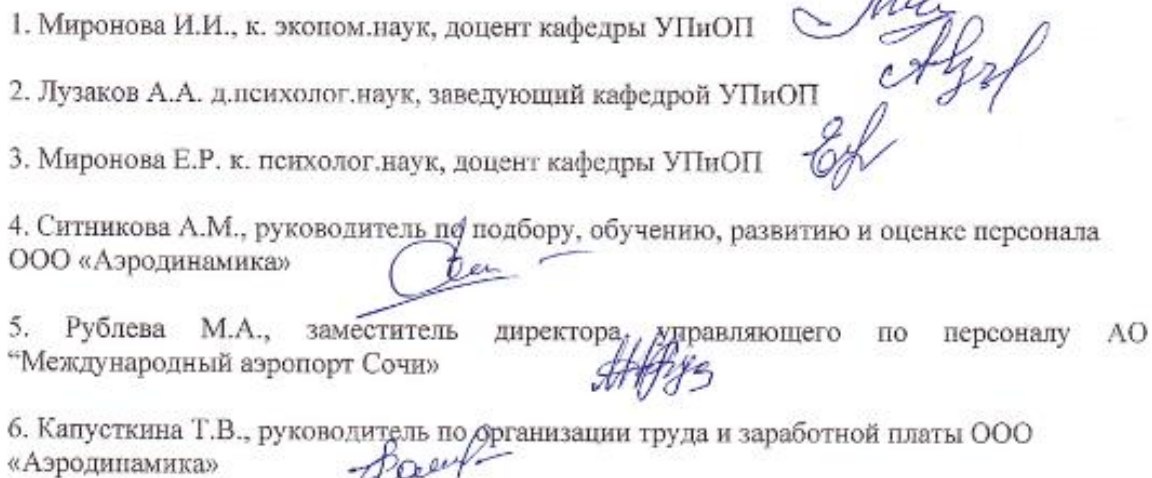 1. Миронова И.И., к. эконом.наук, доцент кафедры УПиОП
2. Лузаков А.А. д.психолог.наук, заведующий кафедрой УПиОП
3. Миронова Е.Р. к. психолог.наук, доцент кафедры УПиОП
4. Ситникова А.М., руководитель по подбору, обучению, развитию и оценке персонала
ООО «Аэродинамика»
5. Рублева М.А., заместитель директора, управляющего по персоналу АО
“Международный аэропорт Сочи»
6. Капусткина Т.В., руководитель по организации труда и заработной платы ООО
«Аэродинамика»